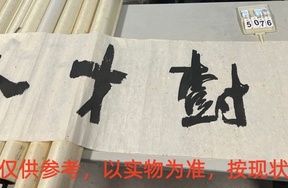 5076
才
仅供参考，以实物为准，按现状